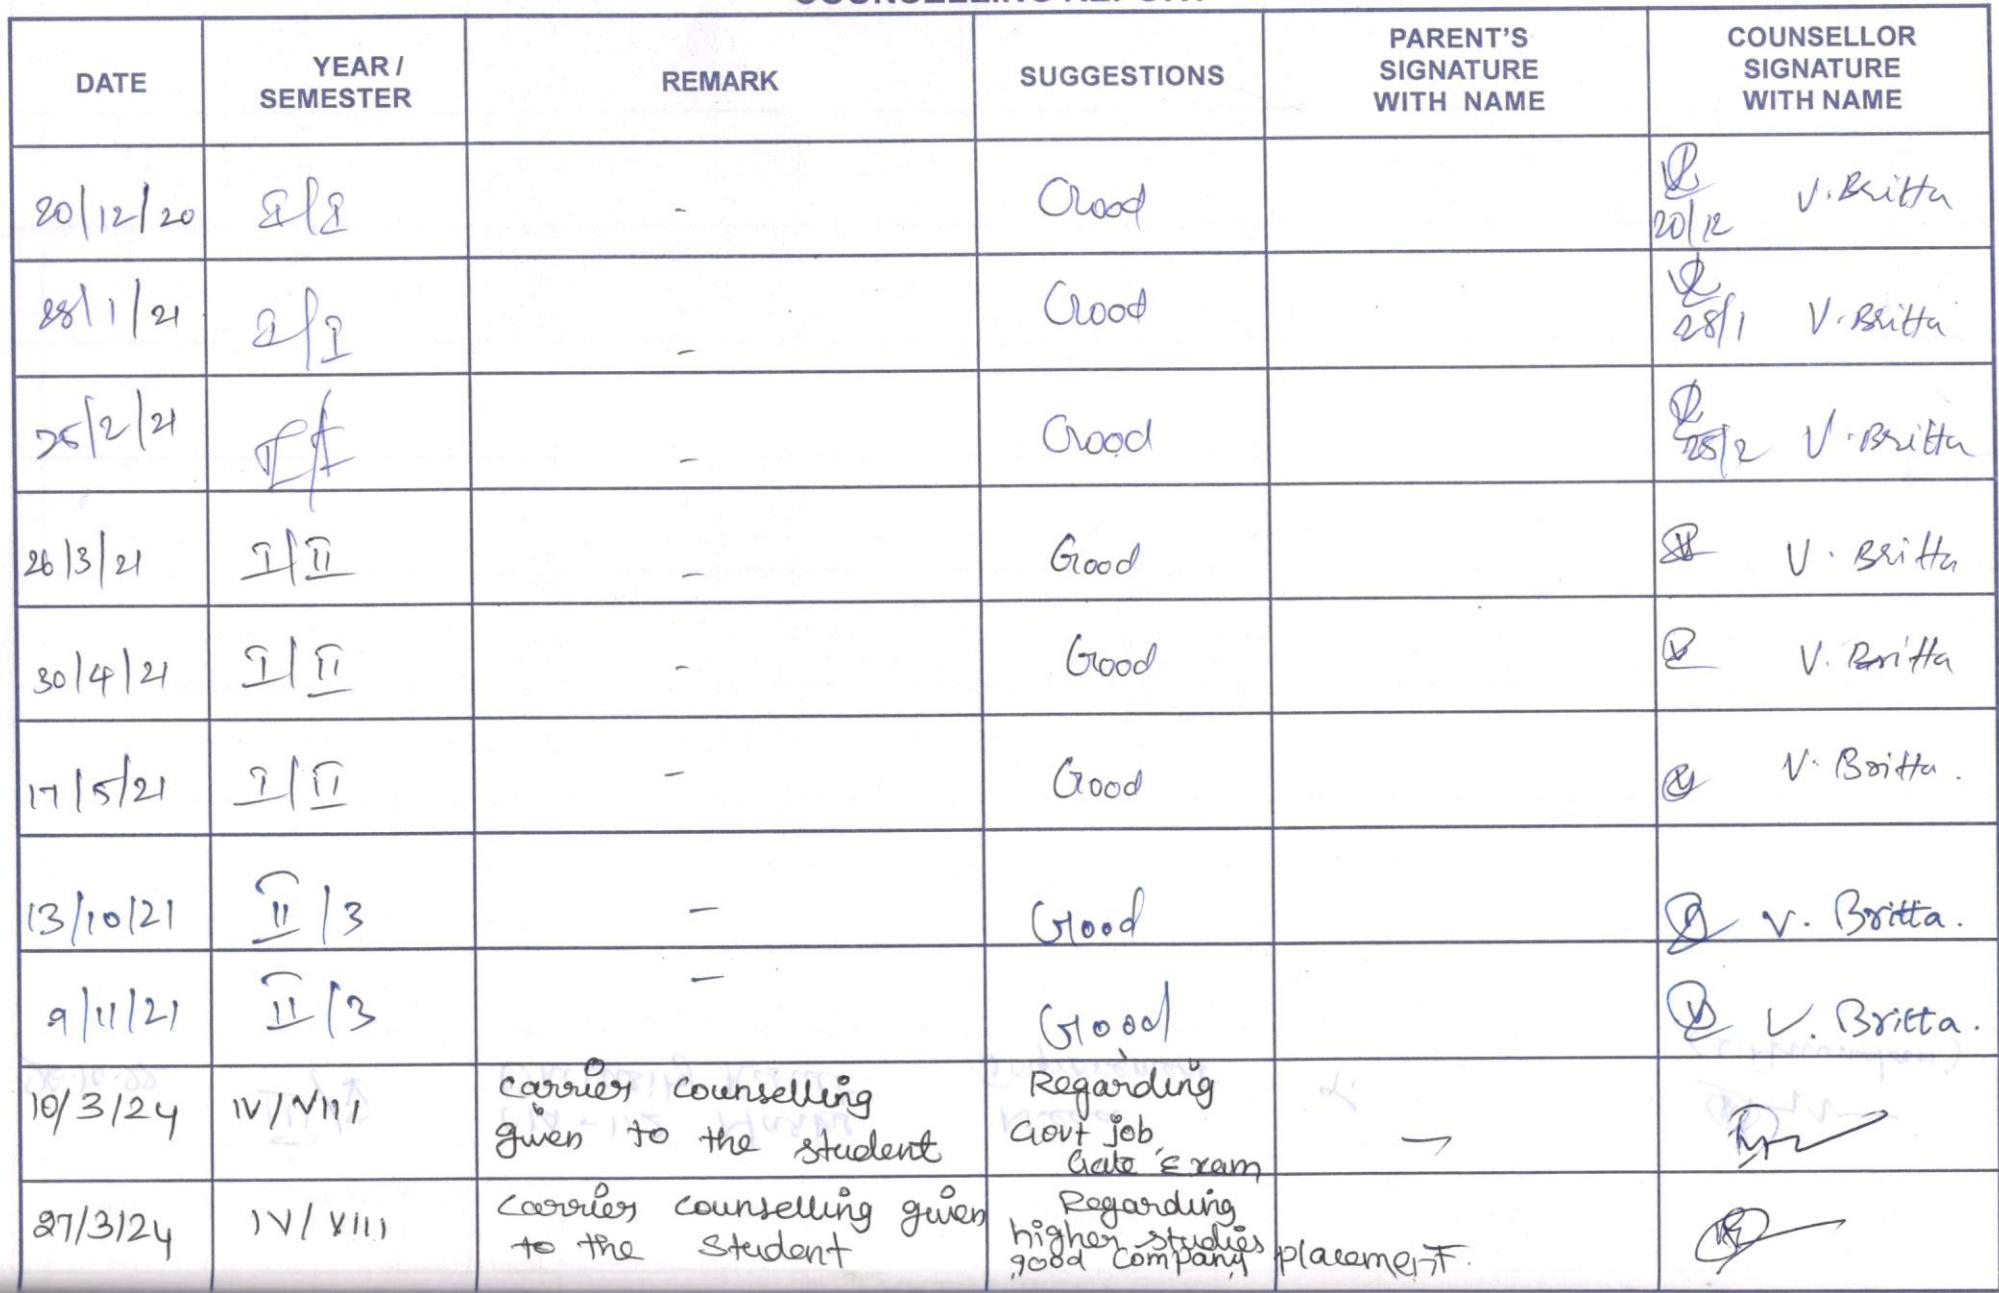 COUNSELLING REPORT
DATE YEAR / SEMESTER REMARK SUGGESTIONS PARENT'S SIGNATURE WITH NAME COUNSELLOR SIGNATURE WITH NAME
20/12/20 I/I - Good 20/12 V. Britta
28/1/21 I/I - Good 28/1 V. Britta
25/2/21 - Good 25/2 V. Britta
26/3/21 I/II - Good V. Britta
30/4/21 I/II - Good V. Britta
17/5/21 I/II - Good V. Britta.
13/10/21 II/3 - Good V. Britta.
9/11/21 II/3 - Good V. Britta.
10/3/24 IV/VIII carrier counselling given to the student Regarding Govt job, Gate Exam -
27/3/24 IV/VIII carrier counselling given to the student Regarding higher studies good company placement.